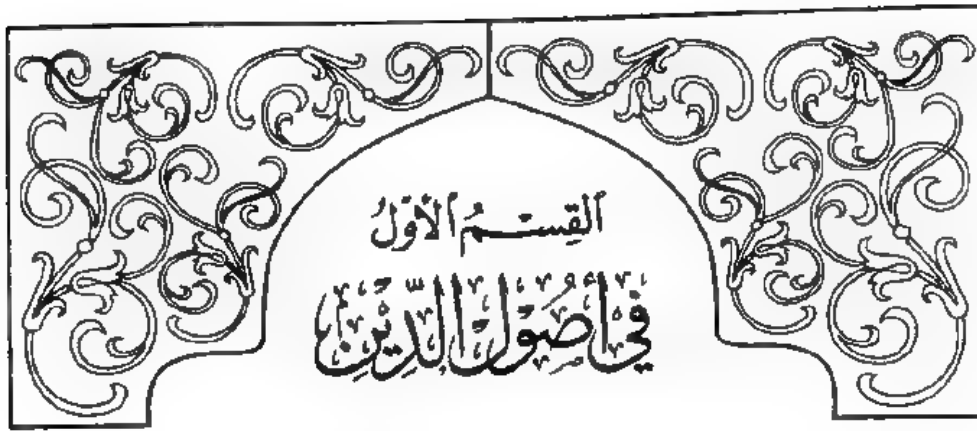 القِسْمُ الأوّلُ
في أُصُوْلِ الدِّيْنِ